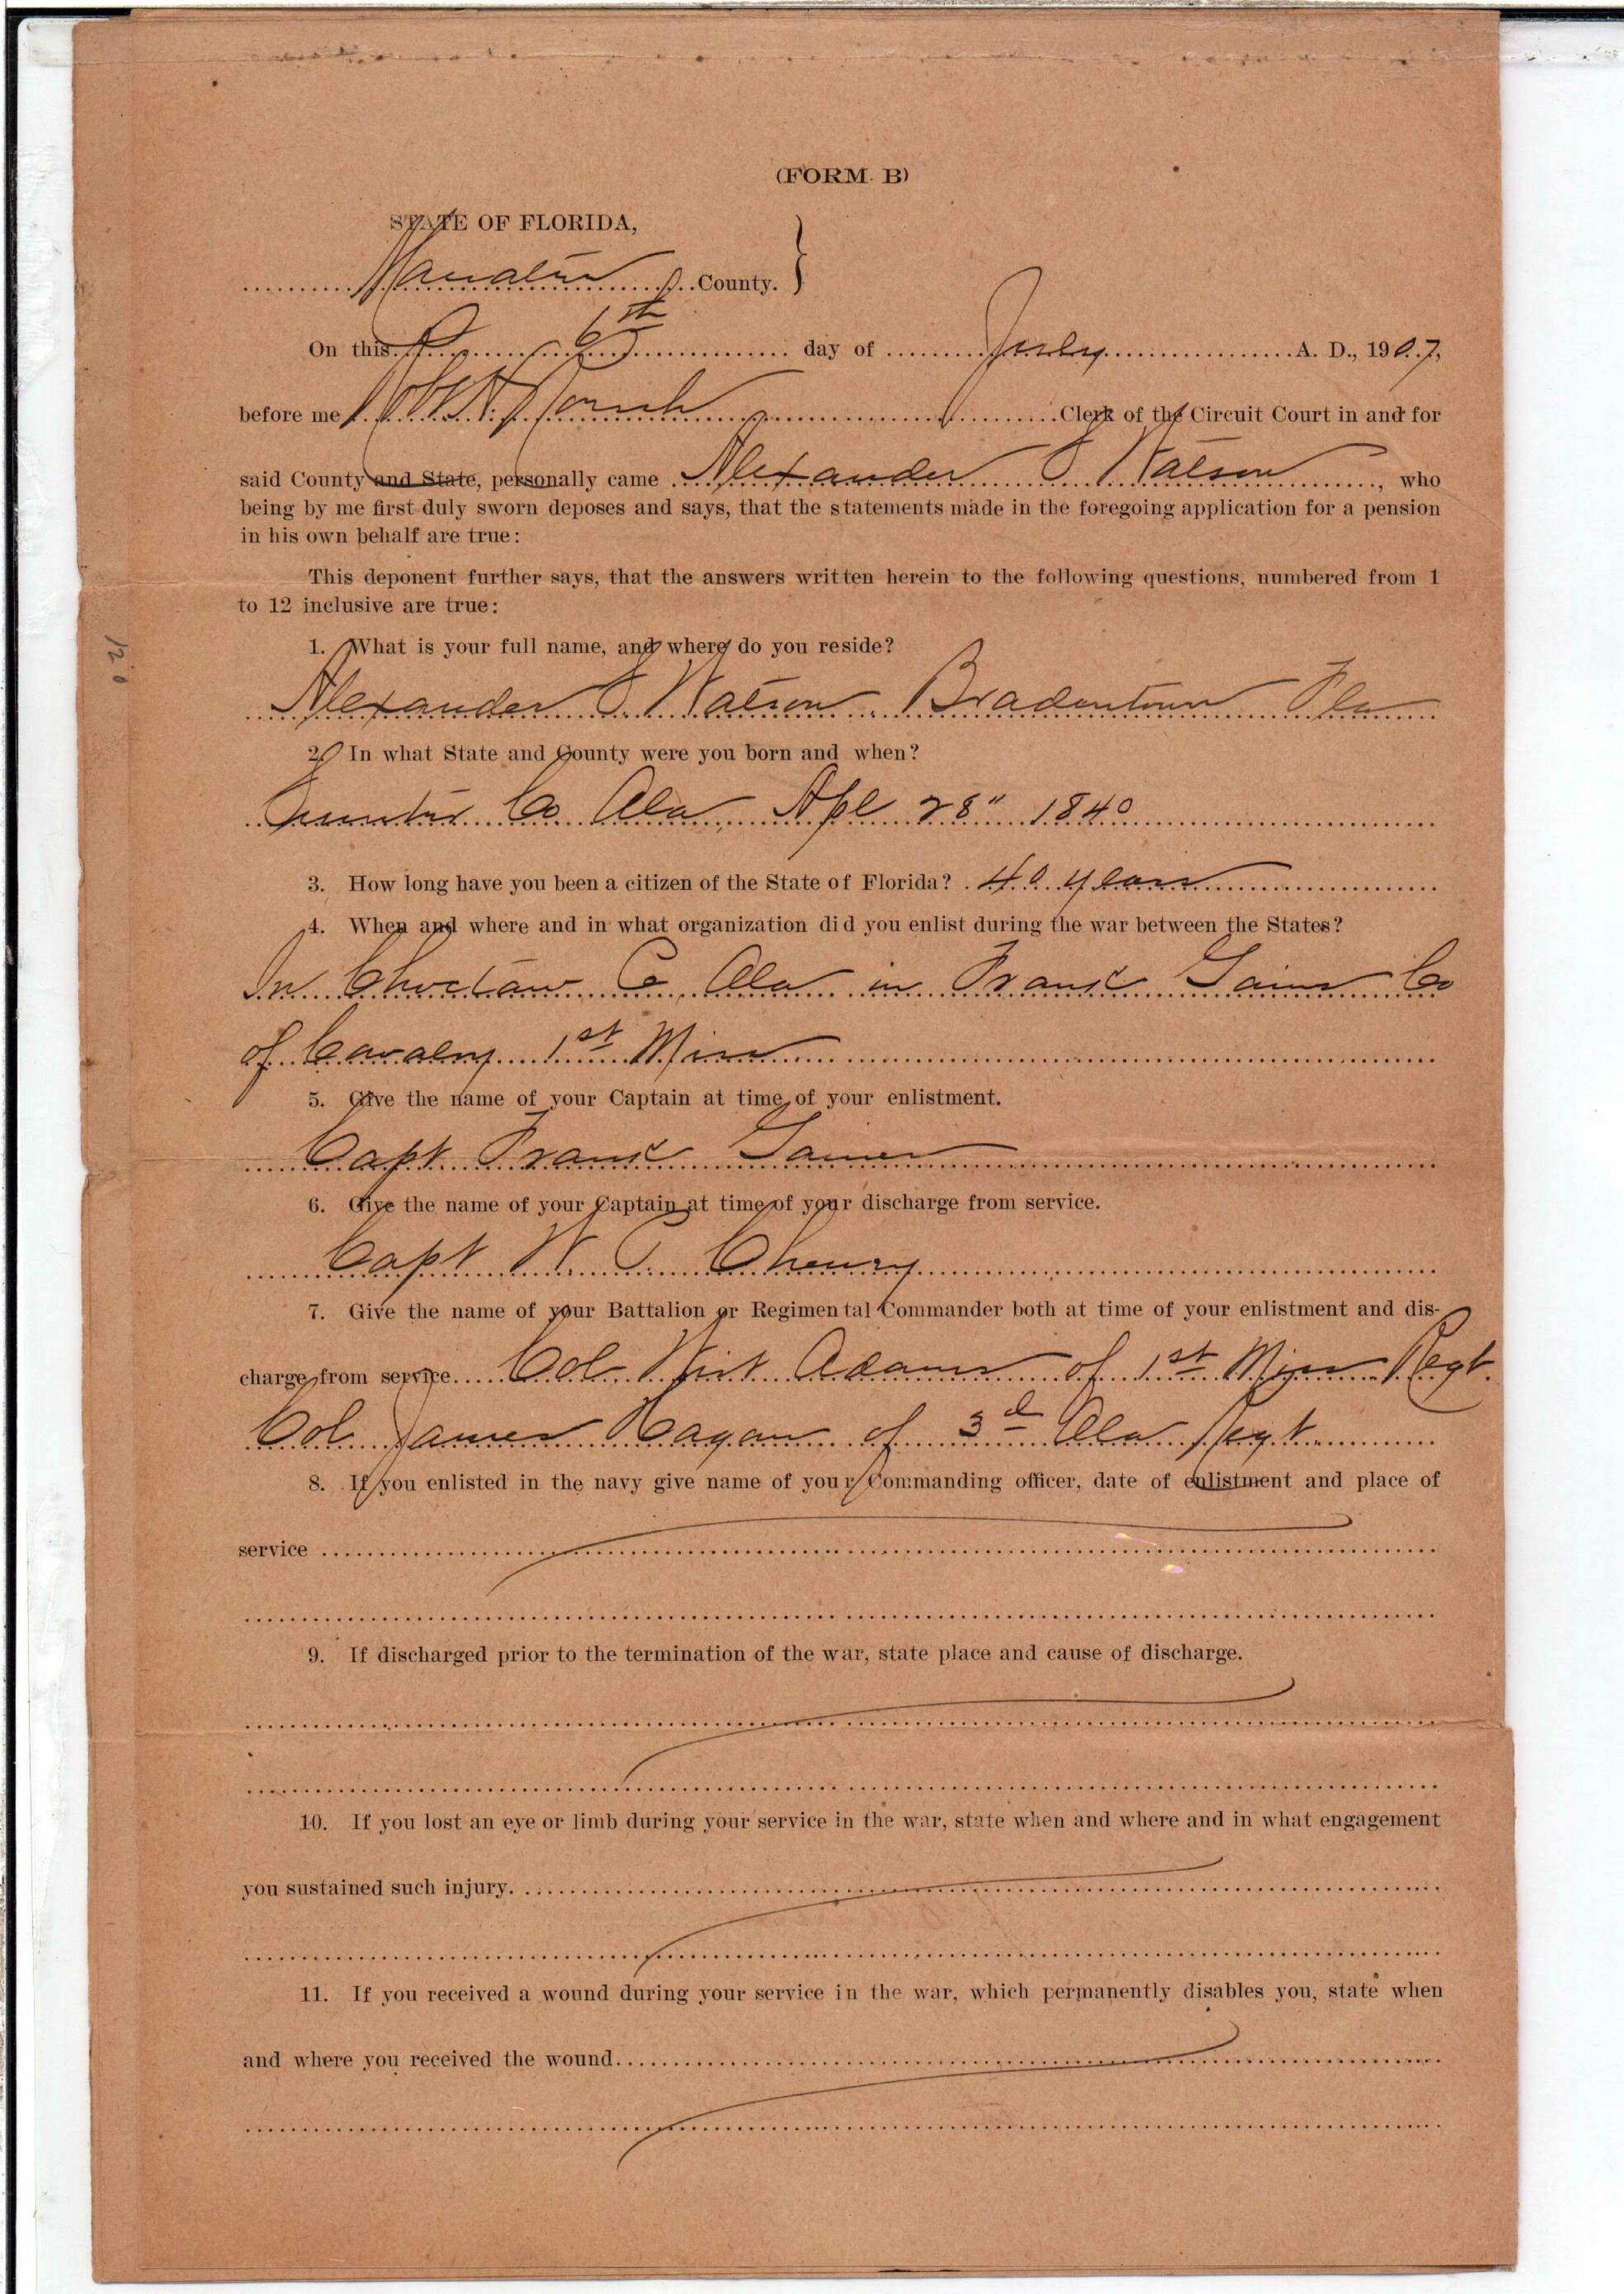 (FORM B)
STATE OF FLORIDA,
Manatee County.
On this 6th day of July A. D., 1907,
before me Clerk of the Circuit Court in and for
said County and State, personally came Alexander S Watson, who
being by me first duly sworn deposes and says, that the statements made in the foregoing application for a pension
in his own behalf are true:
This deponent further says, that the answers written herein to the following questions, numbered from 1
to 12 inclusive are true:
1. What is your full name, and where do you reside?
Alexander S Watson Bradentown Fla
2. In what State and County were you born and when?
Sumter Co Ala Apl 28" 1840
3. How long have you been a citizen of the State of Florida? 40 years
4. When and where and in what organization did you enlist during the war between the States?
In Choctaw Co Ala in Frank Gaines Co
of Cavalry 1st Miss
5. Give the name of your Captain at time of your enlistment.
Capt Frank Gaines
6. Give the name of your Captain at time of your discharge from service.
Capt W. P. Cheney
7. Give the name of your Battalion or Regimental Commander both at time of your enlistment and dis-
charge from service Col Wirt Adams of 1st Miss Regt.
Col James Hagan of 3d Ala Regt
8. If you enlisted in the navy give name of your Commanding officer, date of enlistment and place of
service
9. If discharged prior to the termination of the war, state place and cause of discharge.
10. If you lost an eye or limb during your service in the war, state when and where and in what engagement
you sustained such injury.
11. If you received a wound during your service in the war, which permanently disables you, state when
and where you received the wound.